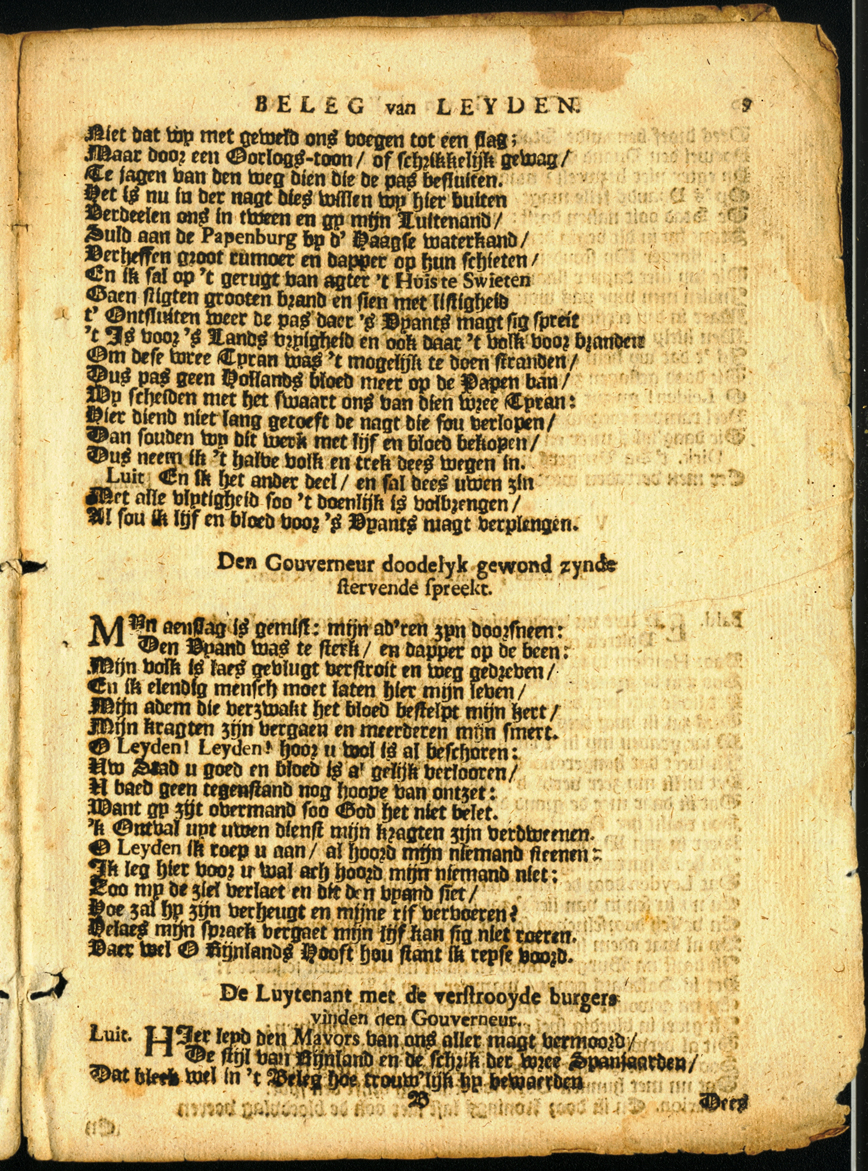 BELEG van LEYDEN. 9
Niet dat wy met geweld ons voegen tot een slag;
Maar door een Oorlogs-toon / of schrikkelijk gewag /
Te jagen van den weg dien die de pas besluiten.
Het is nu in der nagt dies willen wy hier buiten
Verdeelen ons in tween en gy mijn Luitenand /
Suld aan de Papenburg by d' Haagse waterkand /
Verheffen groot rumoer en dapper op hun schieten /
En ik sal op 't gerugt van agter 't Huis te Swieten
Gaen stigten grooten brand en sien met listigheid
t' Ontsluiten weer de pas daer 's Vyants magt sig spreit
't Is voor 's Lands vryigheid en ook daar 't volk voor branden
Om dese wree Tyran was 't mogelijk te doen stranden /
Dus pas geen Hollands bloed meer op de Papen ban /
Wy scheiden met het swaart ons van dien wree Tyran:
Hier diend niet lang getoeft de nagt die sou verlopen /
Dan souden wy dit werk met lijf en bloed bekopen /
Dus neem ik 't halve volk en trek dees wegen in.
Luit. En ik het ander deel / en sal dees uwen zin
Met alle vlytigheid soo 't doenlijk is volbrengen /
Al sou ik lijf en bloed voor 's Vyants magt verplengen.
Den Gouverneur doodelyk gewond zynde
stervende spreekt.
MYn aenslag is gemist: mijn ad'ren zyn doorsneen:
Den Vyand was te sterk / en dapper op de been:
Mijn volk is laes gevlugt verstroit en weg gedreven /
En ik elendig mensch moet laten hier mijn leven /
Mijn adem die verzwakt het bloed bestelpt mijn hert /
Mijn kragten zijn vergaen en meerderen mijn smert.
O Leyden! Leyden! hoor u wol is al beschoren:
Uw Stad u goed en bloed is al gelijk verlooren /
U baed geen tegenstand nog hoope van ontzet:
Want gy zijt overmand soo God het niet belet.
'k Ontval uyt uwen dienst mijn kragten zijn verdweenen.
O Leyden ik roep u aan / al hoord mijn niemand steenen:
Ik leg hier voor u wal ach hoord mijn niemand niet:
Soo my de ziel verlaet en dit den vyand siet /
Hoe zal hy zijn verheugt en mijne rif vervoeren?
Helaes mijn spraek vergaet mijn lijf kan sig niet roeren.
Vaer wel O Rijnlands Hooft hou stant ik reyse voord.
De Luytenant met de verstrooyde burgers
vinden den Gouverneur.
Luit. HIer leyd den Mavors van ons aller magt vermoord /
De stijl van Rijnland en de schrik der wree Spanjaarden /
Dat bleek wel in 't Beleg hoe trouw'lijk hy bewaerden
B Dees